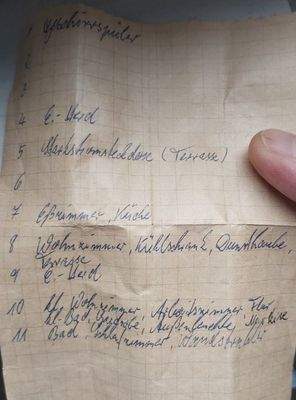 1 Geschirrspüler
2
3
4 E.-Herd
5 Starkstromsteckdose (Terrasse)
6
7 Eßzimmer, Küche
8 Wohnzimmer, Kühlschrank, Dunsthaube,
Terrasse
9 E.-Herd
10 kl. Wohnzimmer, Arbeitszimmer, Flur
kl. Bad, Garage, Außenleuchte, Markise
11 Bad, Schlafzimmer,